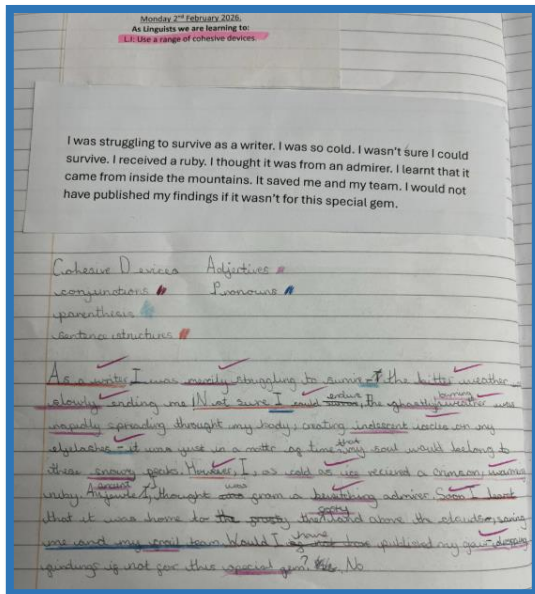 Monday 2nd February 2026.
As Linguists we are learning to:
L.I: Use a range of cohesive devices.
I was struggling to survive as a writer. I was so cold. I wasn't sure I could
survive. I received a ruby. I thought it was from an admirer. I learnt that it
came from inside the mountains. It saved me and my team. I would not
have published my findings if it wasn't for this special gem.
Cohesive Devices Adjectives
conjunctions Pronouns
parenthesis
sentence structures
As a writer, I was struggling to survive - the bitter weather
slowly ending me. Not sure I could endure, the ghastly burning weather was
rapidly spreading thought my body, creating icicles on my
eyelashes - it was just a matter of time that my soul would belong to
these snowy peaks. However, I, as cold as ice recived a crimson, warming
ruby. I, thought was from a bewitching admirer. Soon I learnt
that it was home to the land above the clouds, saving
me and my team. Would I have published my jaw-dropping
findings if not for this special gem? No